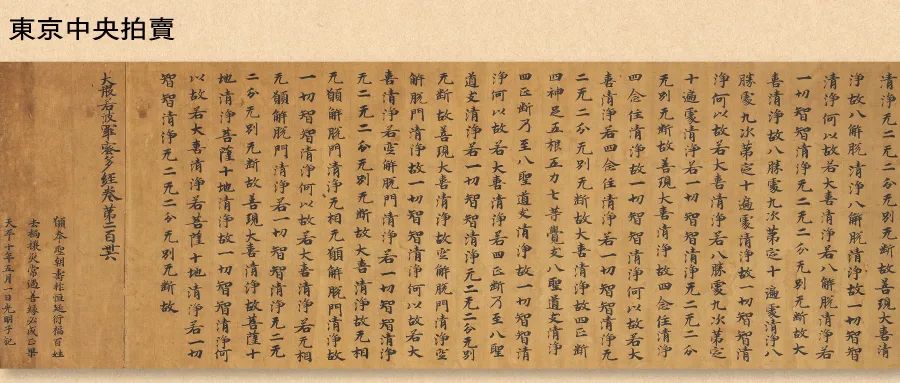 東京中央拍賣
清淨无二无二分无別无断故善現大喜清
淨故八解脫清淨八解脫清淨故一切智智
清淨何以故若大喜清淨若八解脫清淨若
一切智智清淨无二无二分无別无断故大
喜清淨故八勝處九次第定十遍處清淨八
勝處九次第定十遍處清淨故一切智智清
淨何以故若大喜清淨若八勝處九次第定
十遍處清淨若一切智智清淨无二无二分
无別无断故善現大喜清淨故四念住清淨
四念住清淨故一切智智清淨何以故若大
喜清淨若四念住清淨若一切智智清淨无
二无二分无別无断故大喜清淨故四正断
四神足五根五力七等覺支八聖道支清淨
四正断乃至八聖道支清淨故一切智智清
淨何以故若大喜清淨若四正断乃至八聖
道支清淨若一切智智清淨无二无二分无別
无断故善現大喜清淨故空解脫門清淨空
解脫門清淨故一切智智清淨何以故若大
喜清淨若空解脫門清淨若一切智智清淨
无二无二分无別无断故大喜清淨故无相
无願解脫門清淨无相无願解脫門清淨故
一切智智清淨何以故若大喜清淨若无相
无願解脫門清淨若一切智智清淨无二无
二分无別无断故善現大喜清淨故菩薩十
地清淨菩薩十地清淨故一切智智清淨何
以故若大喜清淨若菩薩十地清淨若一切
智智清淨无二无二分无別无断故
大般若波羅蜜多經卷第二百
願奉聖朝壽祚恒延衍福百姓
福攘災常遇善緣必成正果
天平年五月一日光明子記